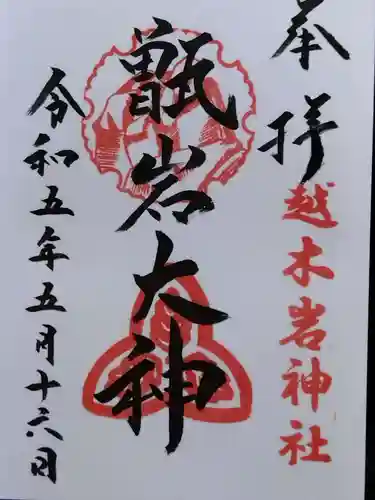 奉拝
越木岩神社
甑岩大神
令和五年五月十六日